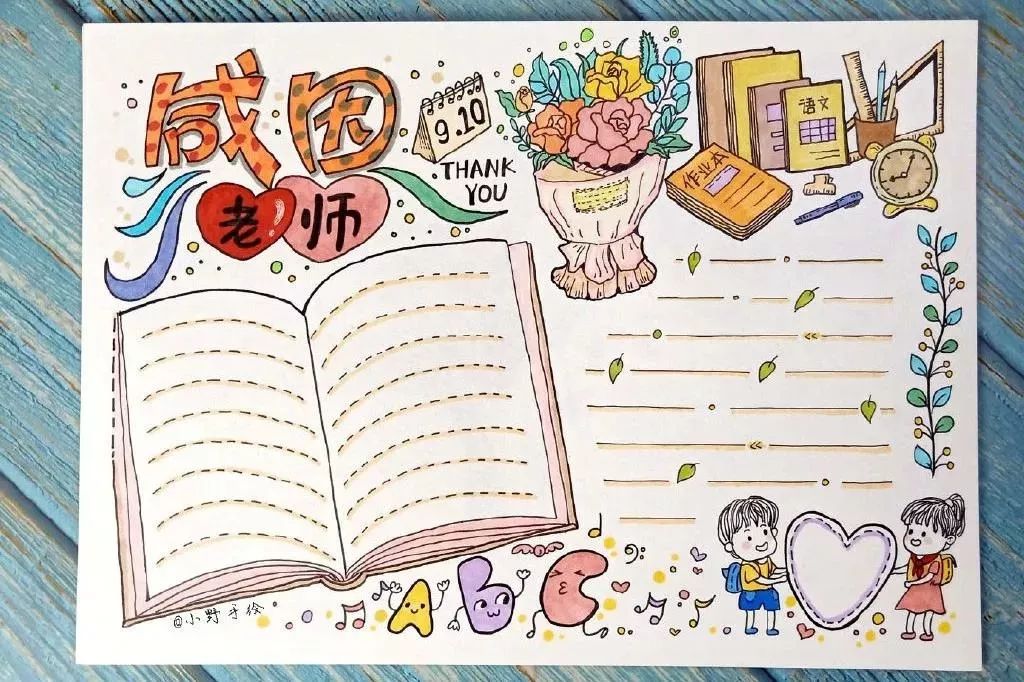 感因
老师
9.10
THANK
YOU
语文
作业本
ABC
@小野手绘